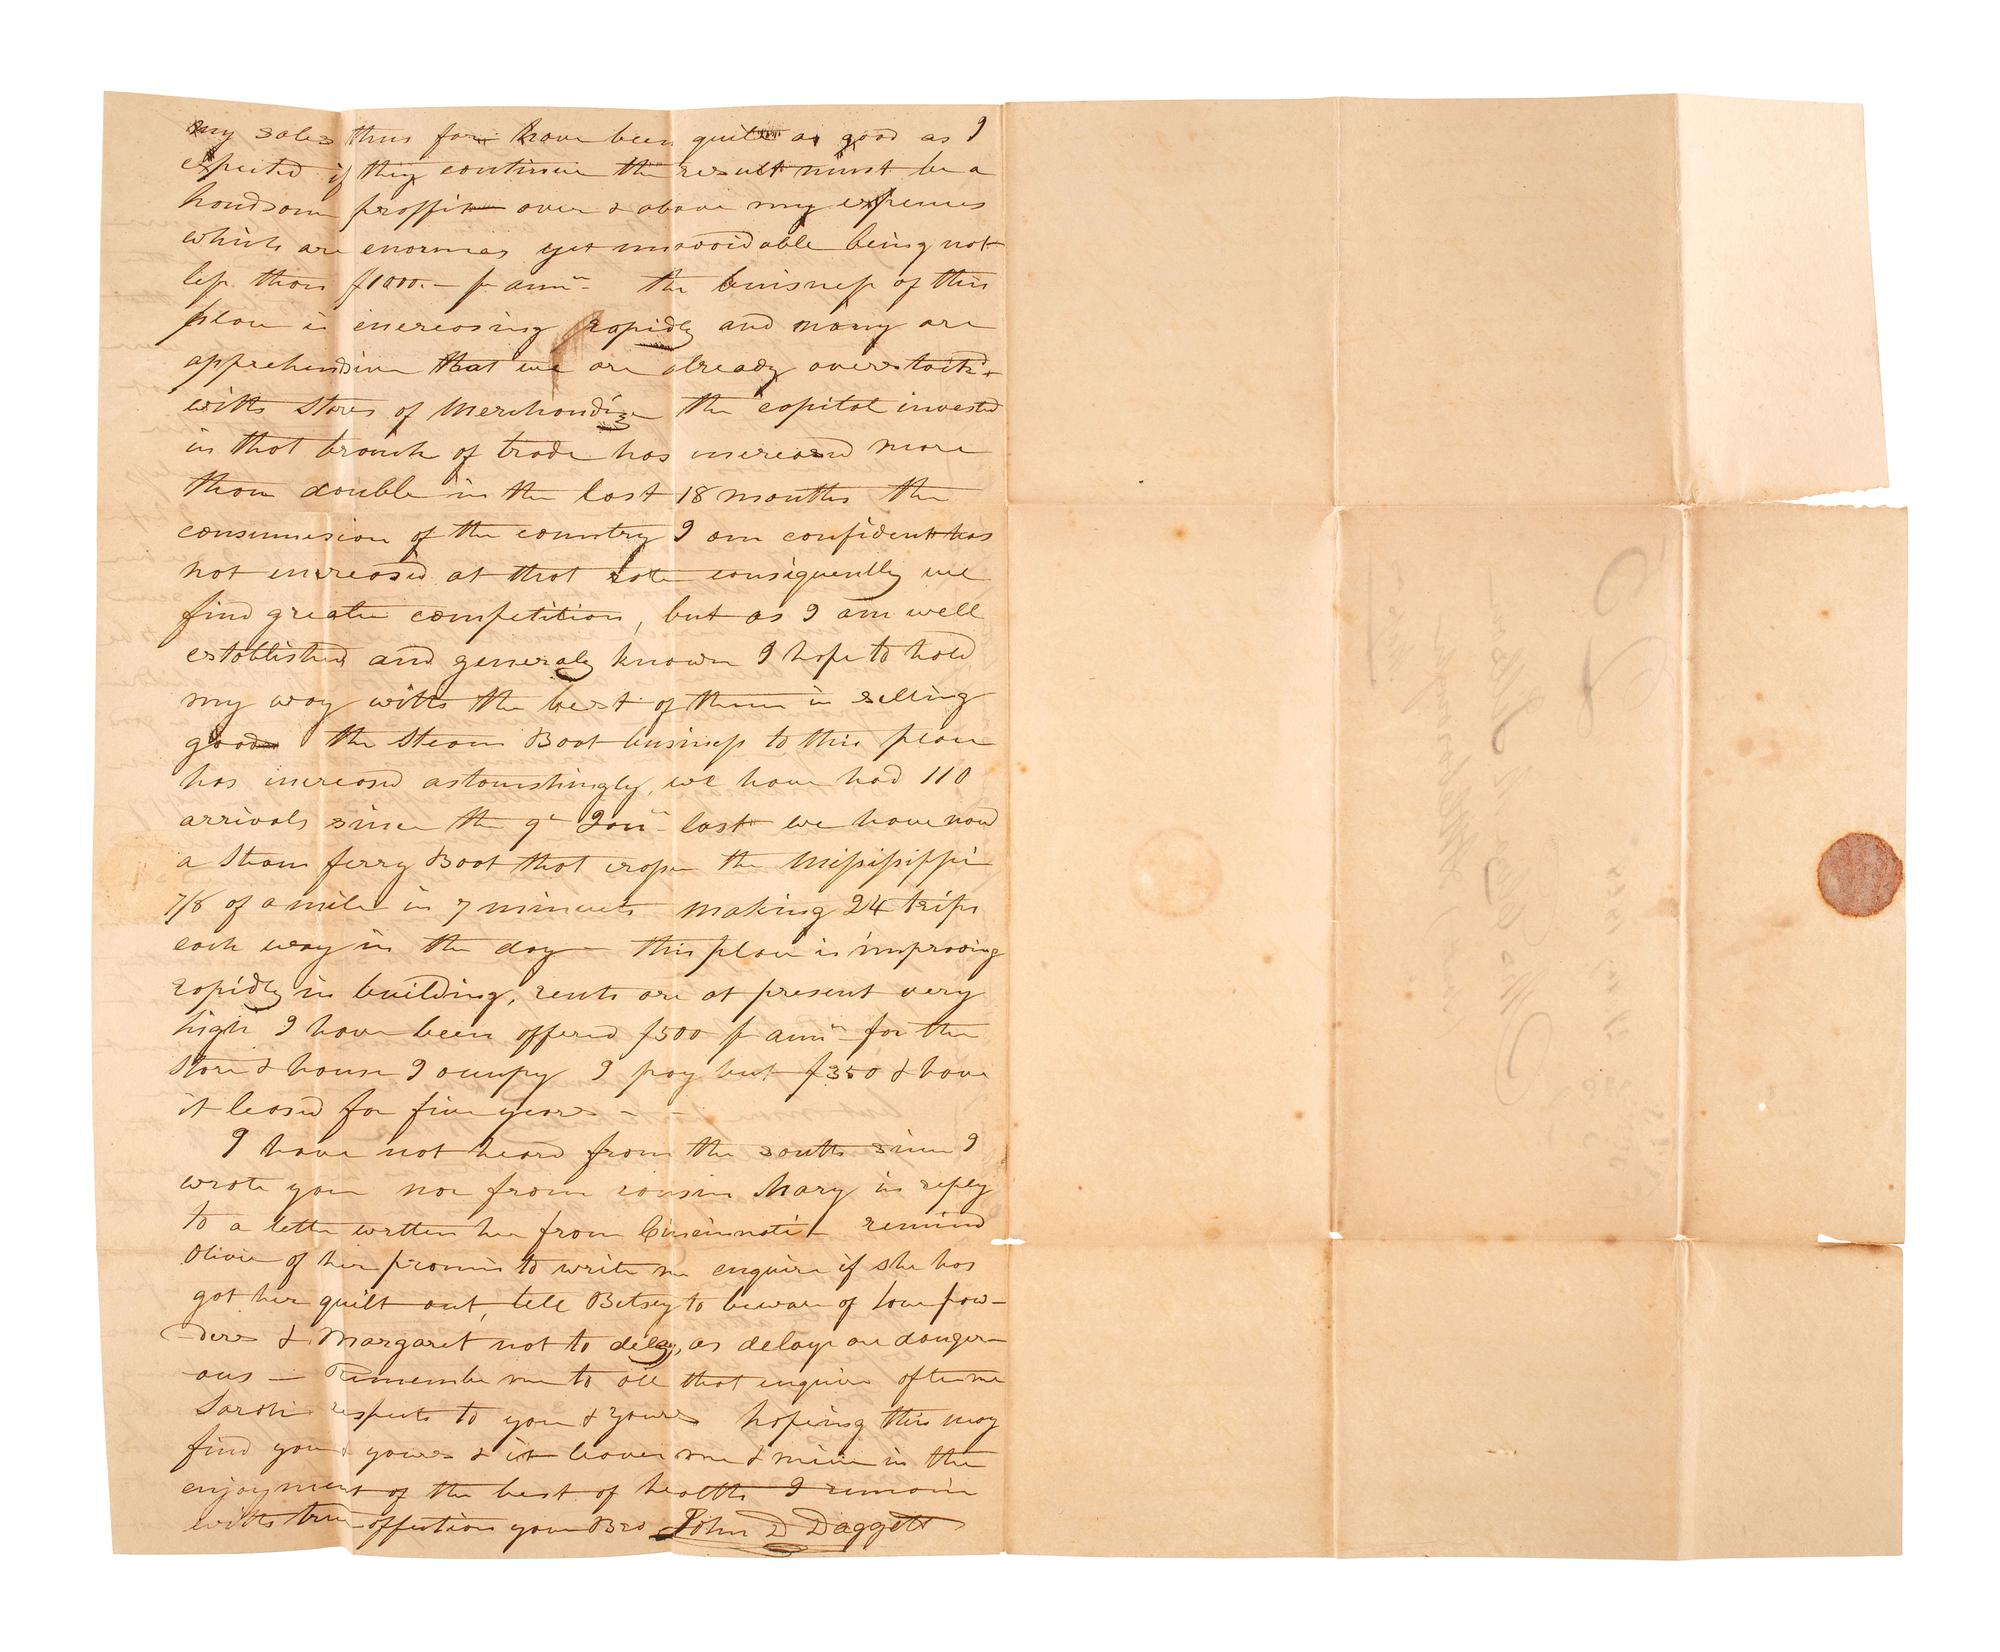 my sales thus far have been quite as good as I
expected if they continue the result must be a
handsome proffit over & above my expenses
which are enormas yet unavoidable being not
less than $1000.— pr annm— the buisness of this
place is increasing rapidly and many are
apprehensive that we are already overstock'd
with stores of Merchandize the capital invested
in that branch of trade has increased more
than double in the last 18 months the
consumesion of the country I am confident has
not increased at that rate consiquently we
find greater competition, but as I am well
established and generaly known I hope to hold
my way with the best of them in selling
goods the Steam Boat business to this place
has increased astonishingly, we have had 110
arrivals since the 9th Jany last we have now
a Steam ferry Boat that cross the Missisippi
7/8 of a mile in 7 minuets making 24 trips
each way in the day — this place is improving
rapidly in building, rents are at present very
high I have been offered $500 pr annm— for the
Store & house I ocupy I pay but $350 & have
it leased for five years — —
I have not heard from the south since I
wrote you nor from cousin Mary in reply
to a letter written her from Cincinnati remind
Olivie of her promis to write me enquire if she has
got her quilt out, tell Betsey to beware of love pow-
-ders & Margaret not to delay, as delays are danger-
ous — Remember me to all that enquire after me
Sarahs respects to you & yours hoping this may
find you & yours as it leaves me & mine in the
enjoyment of the best of health I remain
with true affection your Bro John D Daggett